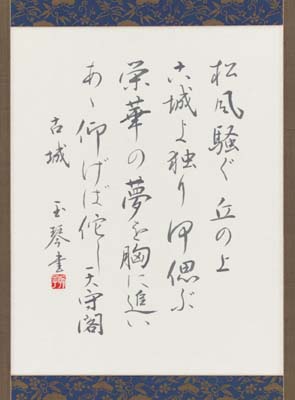 松風騒ぐ 丘の上
古城よ独り 何偲ぶ
栄華の夢を胸に追い
あゝ仰げば侘し天守閣
古城
玉琴書